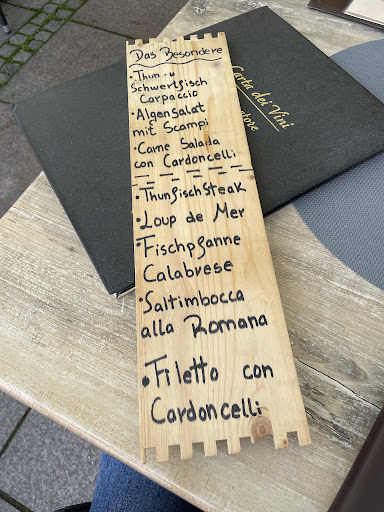 Das Besondere
• Thun- u
Schwertfisch
Carpaccio
• Algensalat
mit Scampi
• Carne Salada
con Cardoncelli
• Thunfischsteak
• Loup de Mer
• Fischpfanne
Calabrese
• Saltimbocca
alla Romana
• Filetto con
Cardoncelli
Carta dei Vini